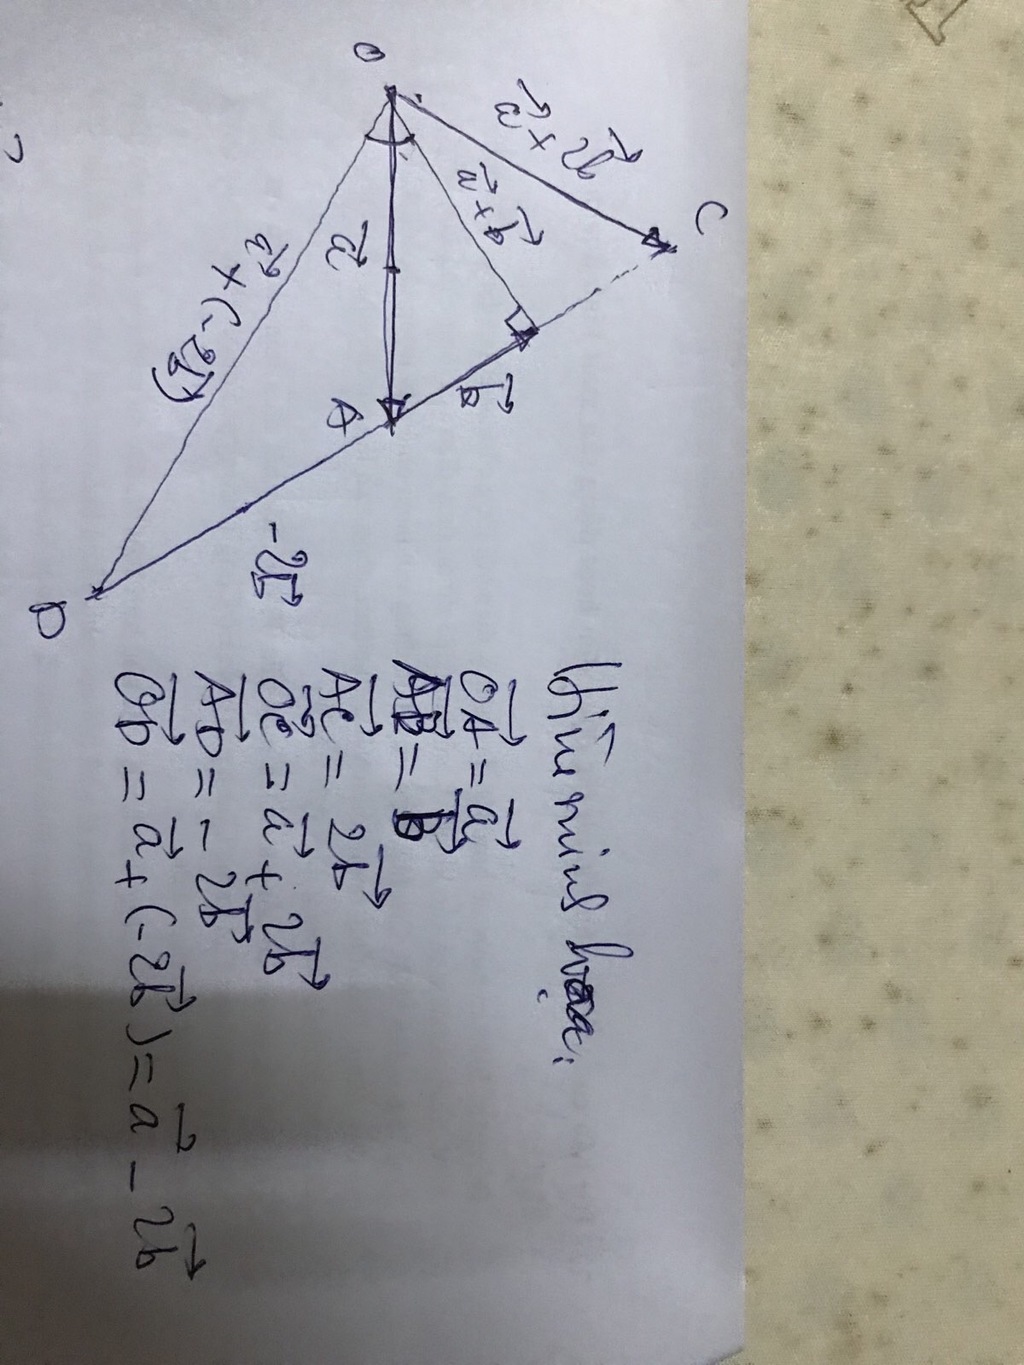 O
C
A
D
a⃗ + 2b⃗
a⃗ + b⃗
a⃗
b⃗
a⃗ + (-2b⃗)
-2b⃗
Hình minh họa:
OA⃗ = a⃗
AB⃗ = b⃗
AC⃗ = 2b⃗
OC⃗ = a⃗ + 2b⃗
AD⃗ = -2b⃗
OD⃗ = a⃗ + (-2b⃗) = a⃗ - 2b⃗